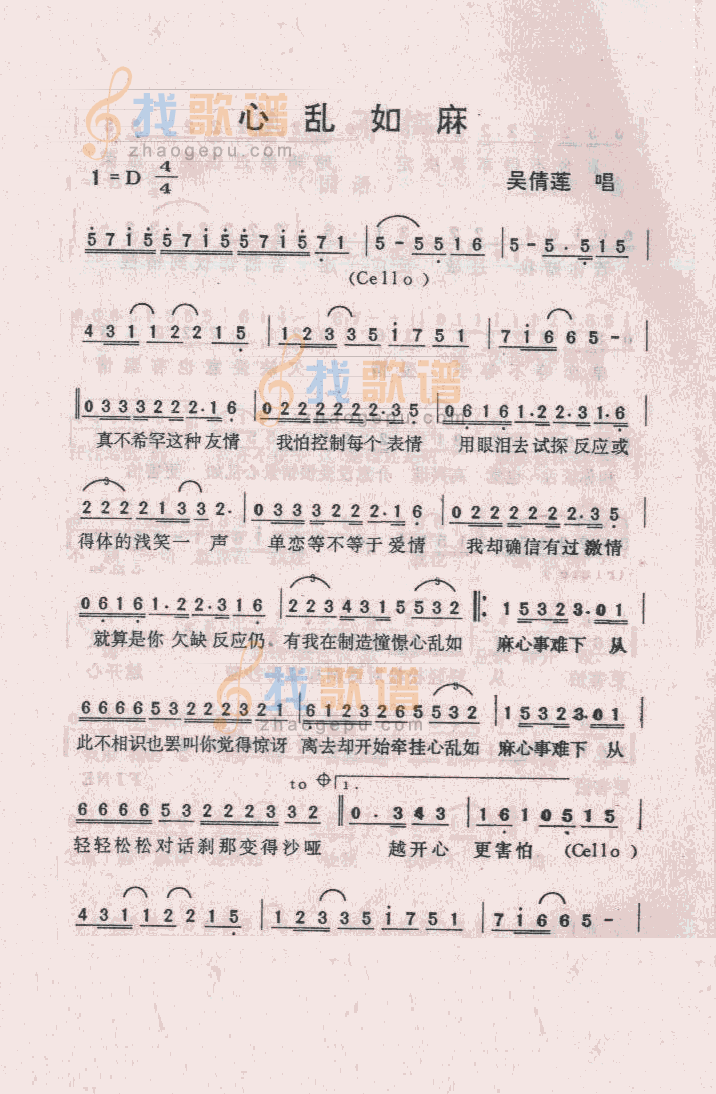 找歌谱
zhaogepu.com
心乱如麻
1=D 4/4
吴倩莲 唱
5 7 i 5 5 7 i 5 5 7 i 5 7 1 | 5 - 5 5 1 6 | 5 - 5 . 5 1 5 |
(Cello)
4 3 1 1 2 2 1 5 | 1 2 3 3 5 i 7 5 1 | 7 i 6 6 5 - |
‖ 0 3 3 3 2 2 2 . 1 6 | 0 2 2 2 2 2 2 . 3 5 | 0 6 1 6 1 . 2 2 . 3 1 . 6
真不希罕这种友情 我怕控制每个表情 用眼泪去试探反应或
3
2 2 2 2 1 3 3 2 . | 0 3 3 3 2 2 2 . 1 6 | 0 2 2 2 2 2 2 . 3 5 |
得体的浅笑一声 单恋等不等于爱情 我却确信有过激情
3 3
0 6 1 6 1 . 2 2 . 3 1 6 | 2 2 3 4 3 1 5 5 3 2 ‖: 1 5 3 2 3 . 0 1 |
就算是你欠缺反应仍。有我在制造憧憬心乱如 麻心事难下 从
3
6 6 6 6 5 3 2 2 2 3 2 1 | 6 1 2 3 2 6 5 5 3 2 | 1 5 3 2 3 . 0 1 |
此不相识也罢叫你觉得惊讶 离去却开始牵挂心乱如 麻心事难下 从
to ⊕ 1.
6 6 6 6 5 3 2 2 2 3 3 2 ‖ 0 . 3 4 3 | 1 6 1 0 5 1 5 |
轻轻松松对话刹那变得沙哑 越开心 更害怕 (Cello)
4 3 1 1 2 2 1 5 | 1 2 3 3 5 i 7 5 1 | 7 i 6 6 5 - |